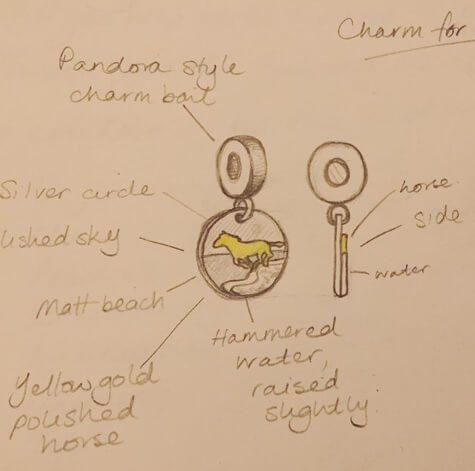 Charm for
Pandora style
charm bail
Silver circle
ished sky
Matt beach
Yellow gold
polished
horse
Hammered
water,
raised
slightly.
horse
side
water